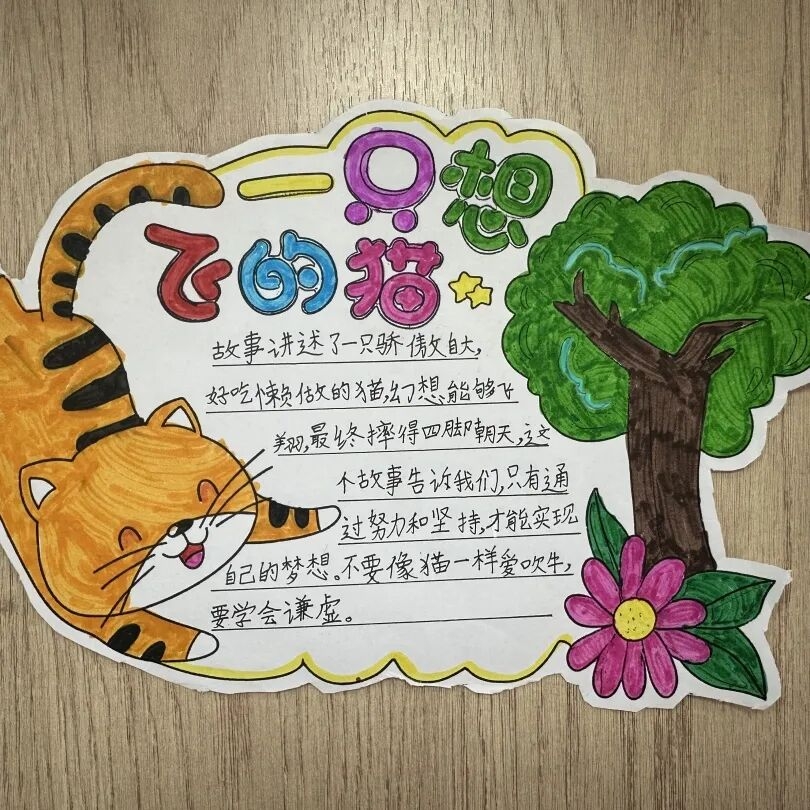 一只想
飞的猫
故事讲述了一只骄傲自大,
好吃懒做的猫,幻想能够飞
翔,最终摔得四脚朝天,这
个故事告诉我们,只有通
过努力和坚持,才能实现
自己的梦想。不要像猫一样爱吹牛,
要学会谦虚。